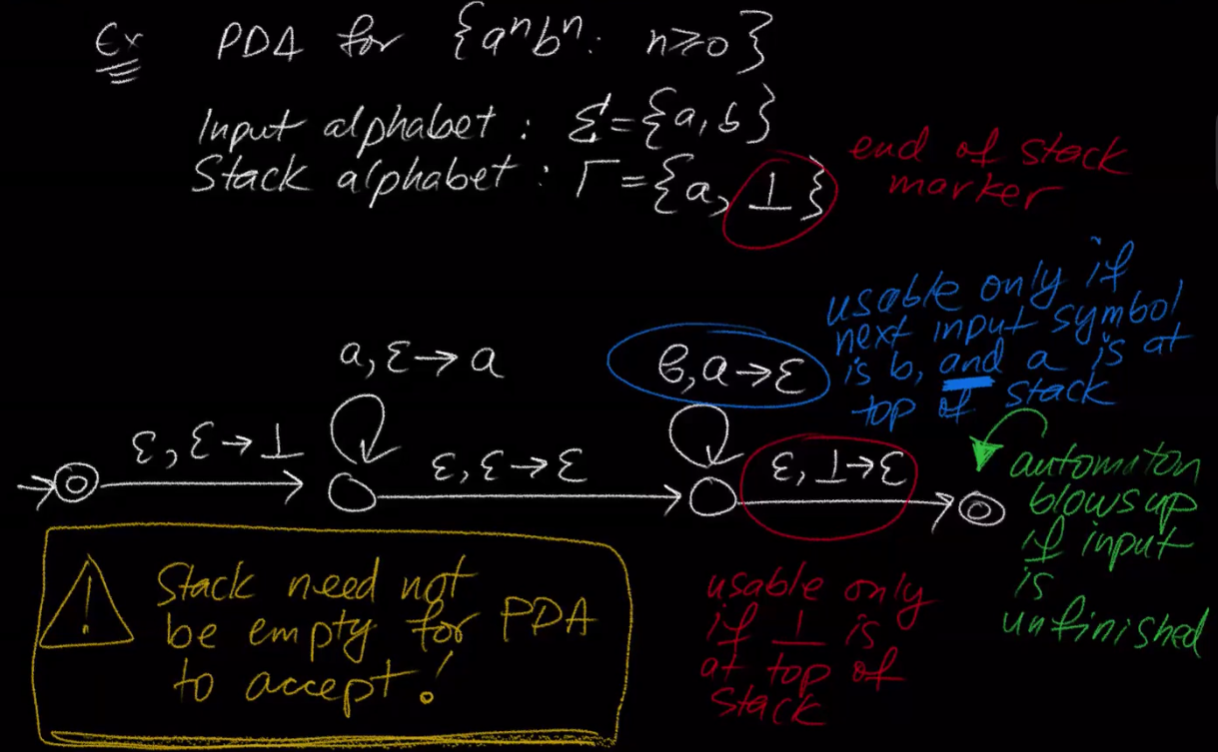 Ex PDA for {aⁿbⁿ: n≥0}
Input alphabet: Σ={a,b}
Stack alphabet: Γ={a, ⊥}
end of stack
marker
usable only if
next input symbol
is b, and a is at
top of stack
a, ε→a
b, a→ε
ε, ε→⊥
ε, ε→ε
ε, ⊥→ε
automaton
blows up
if input
is
unfinished
Stack need not
be empty for PDA
to accept!
usable only
if ⊥ is
at top of
stack